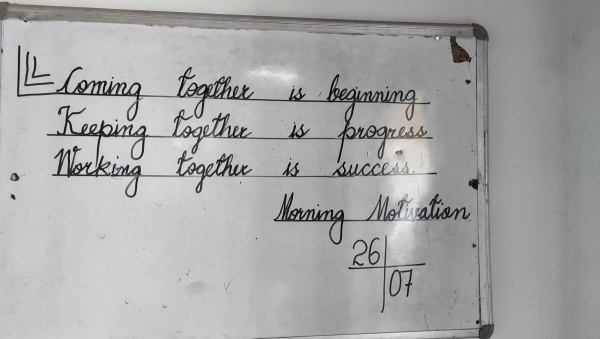 Coming together is beginning
Keeping together is progress
Working together is success.
Morning Motivation
26
07